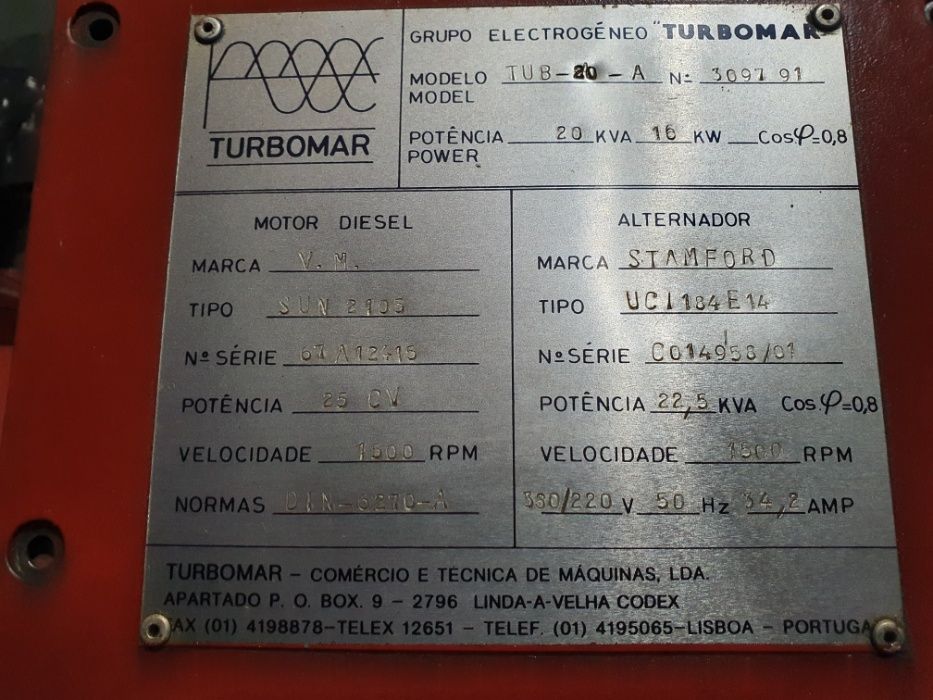 TURBOMAR
GRUPO ELECTROGÉNEO "TURBOMAR"
MODELO TUB-20-A Nº 3097 91
MODEL
POTÊNCIA 20 KVA 16 KW Cosφ=0,8
POWER
MOTOR DIESEL
MARCA V.M.
TIPO SUN 2105
Nº SÉRIE 67A12415
POTÊNCIA 25 CV
VELOCIDADE 1500 RPM
NORMAS DIN-6270-A
ALTERNADOR
MARCA STAMFORD
TIPO UCI184E14
Nº SÉRIE C014958/01
POTÊNCIA 22,5 KVA Cosφ=0,8
VELOCIDADE 1500 RPM
380/220 V 50 Hz 34,2 AMP
TURBOMAR – COMÉRCIO E TECNICA DE MÁQUINAS, LDA.
APARTADO P. O. BOX. 9 – 2796 LINDA-A-VELHA CODEX
FAX (01) 4198878–TELEX 12651 – TELEF. (01) 4195065–LISBOA – PORTUGAL